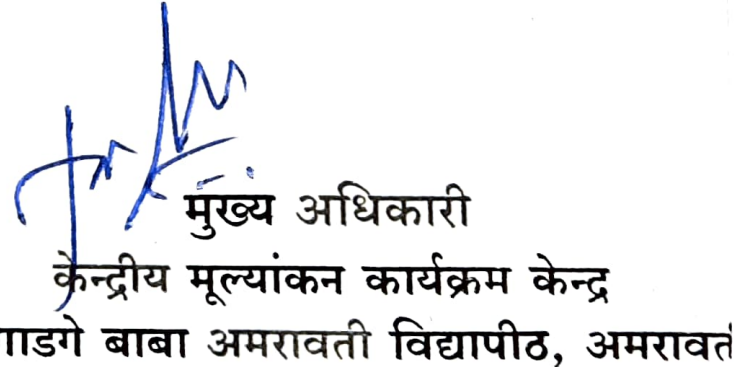 मुख्य अधिकारी
केन्द्रीय मूल्यांकन कार्यक्रम केन्द्र
गाडगे बाबा अमरावती विद्यापीठ, अमरावती